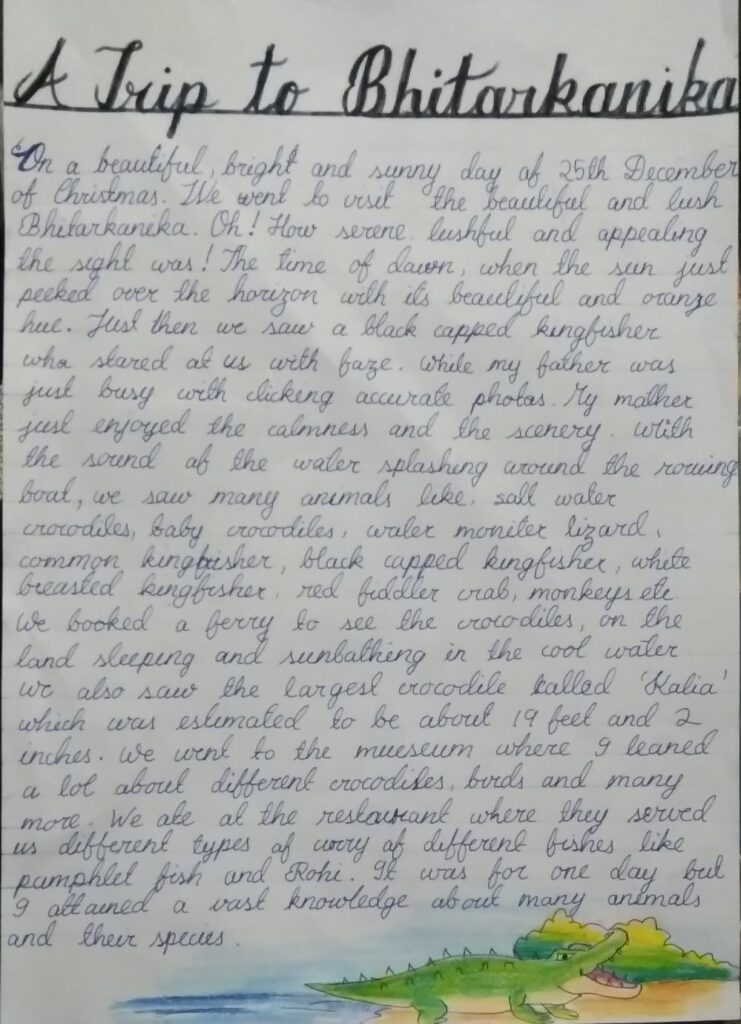 A Trip to Bhitarkanika
On a beautiful, bright and sunny day of 25th December
of Christmas. We went to visit the beautiful and lush
Bhitarkanika. Oh! How serene, lushful and appealing
the sight was! The time of dawn, when the sun just
peeked over the horizon with its beautiful and orange
hue. Just then we saw a black capped kingfisher
who stared at us with faze. While my father was
just busy with clicking accurate photos. My mather
just enjoyed the calmness and the scenery. With
the sound of the water splashing around the rowing
boat, we saw many animals like, salt water
crocodiles, baby crocodiles, water moniter lizard,
common kingfisher, black capped kingfisher, white
breasted kingfisher, red fiddler crab, monkeys etc
We booked a ferry to see the crocodiles, on the
land sleeping and sunbathing in the cool water
we also saw the largest crocodile called 'Kalia'
which was estimated to be about 19 feet and 2
inches. We went to the mueseum where I leaned
a lot about different crocodiles, birds and many
more. We ate at the restaurant where they served
us different types of curry of different fishes like
pamphlet fish and Rohi. It was for one day but
I attained a vast knowledge about many animals
and their species.